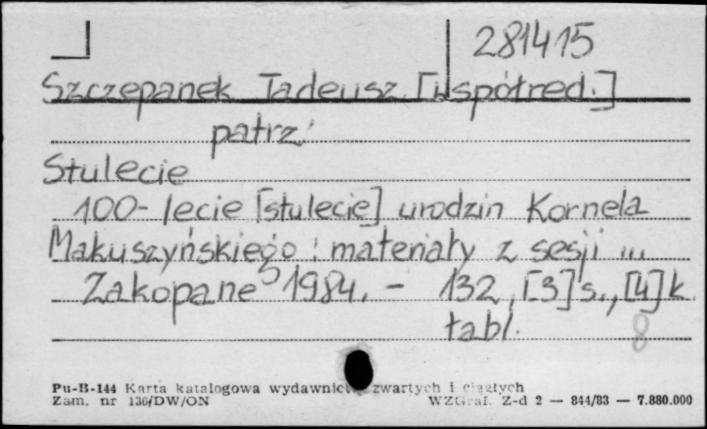 281415
Szczepanek Tadeusz [współred.]
patrz:
Stulecie
100-lecie [stulecie] urodzin Kornela
Makuszyńskiego : materiały z sesji ...
Zakopane 1984. - 132, [3] s., [4] k.
tabl. 8
Pu-B-144 Karta katalogowa wydawnictw zwartych i ciągłych
Zam. nr 136/DW/ON WZGraf. Z-d 2 — 844/83 — 7.880.000